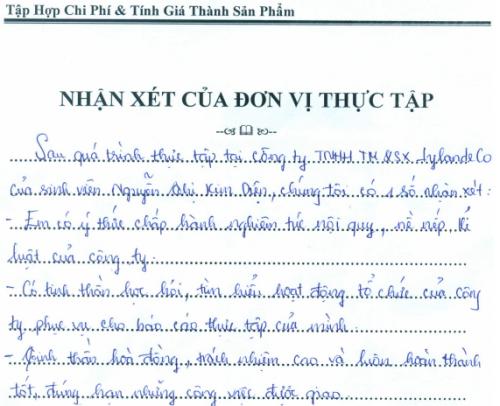 Tập Hợp Chi Phí & Tính Giá Thành Sản Phẩm
NHẬN XÉT CỦA ĐƠN VỊ THỰC TẬP
Sau quá trình thực tập tại công ty TNHH TM & SX LylandeCo
của sinh viên Nguyễn Thị Kim Diện, chúng tôi có 1 số nhận xét:
- Em có ý thức chấp hành nghiêm túc nội quy, nề nếp kỉ
luật của công ty.
- Có tinh thần học hỏi, tìm hiểu hoạt động tổ chức của công
ty phục vụ cho báo cáo thực tập của mình.
- Tinh thần hoà đồng, trách nhiệm cao và luôn hoàn thành
tốt, đúng hạn những công việc được giao.